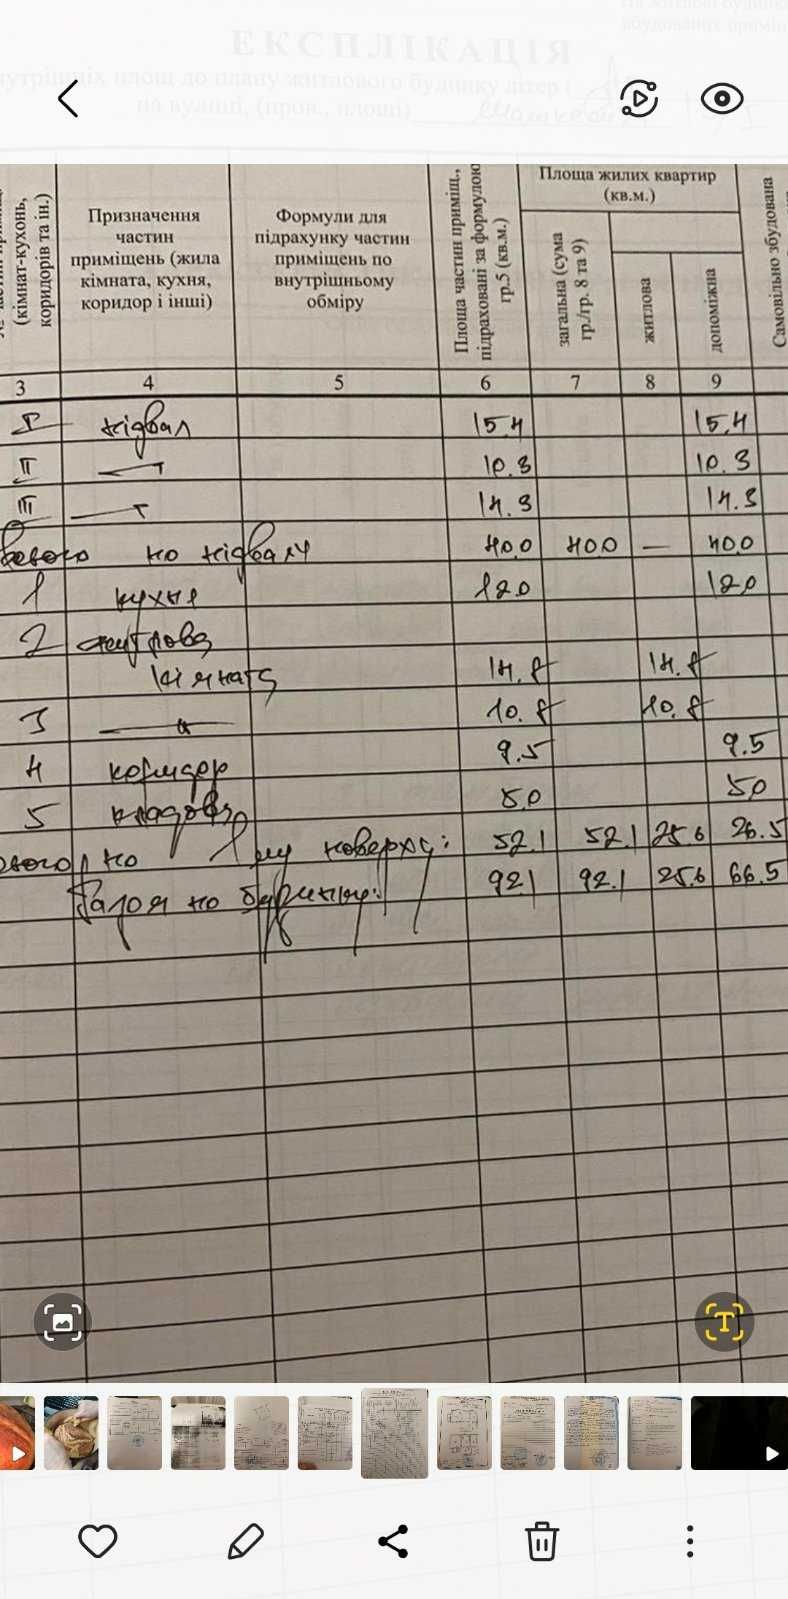 ЕКСПЛІКАЦІЯ
внутрішніх площ до плану житлового будинку літер (
на вулиці, (пров., площі)
(кімнат-кухонь, коридорів та ін.)
Призначення частин приміщень (жила кімната, кухня, коридор і інші)
Формули для підрахунку частин приміщень по внутрішньому обміру
Площа частин приміщ., підраховані за формулою гр.5 (кв.м.)
Площа жилих квартир (кв.м.)
загальна (сума гр./гр. 8 та 9)
житлова
допоміжна
Самовільно збудована
3 4 5 6 7 8 9
I підвал 15.4 15.4
II —"— 10.3 10.3
III —"— 14.3 14.3
Всього по підвалу 40.0 40.0 — 40.0
1 кухня 12.0 12.0
2 житлова
кімната 14.8 14.8
3 —"— 10.8 10.8
4 коридор 9.5 9.5
5 кладова 5.0 5.0
Всього по 1му поверху: 52.1 52.1 25.6 26.5
Разом по будинку: 92.1 92.1 25.6 66.5